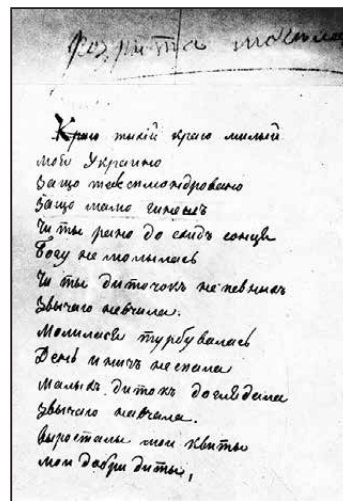 Розрита могила
Краю тихій краю милый
моя Украино
За що тебе сплюндровано
За що мамо гинешъ
Чи ты рано до схидъ сонця
Богу не молылась
Чи ты диточокъ не певныхъ
Звычаю невчала.
Молилася турбувалась
День и ничъ не спала
малыхъ дитокъ доглядала
Звычаю навчала.
Выросталы мои квиты
мои добри диты,